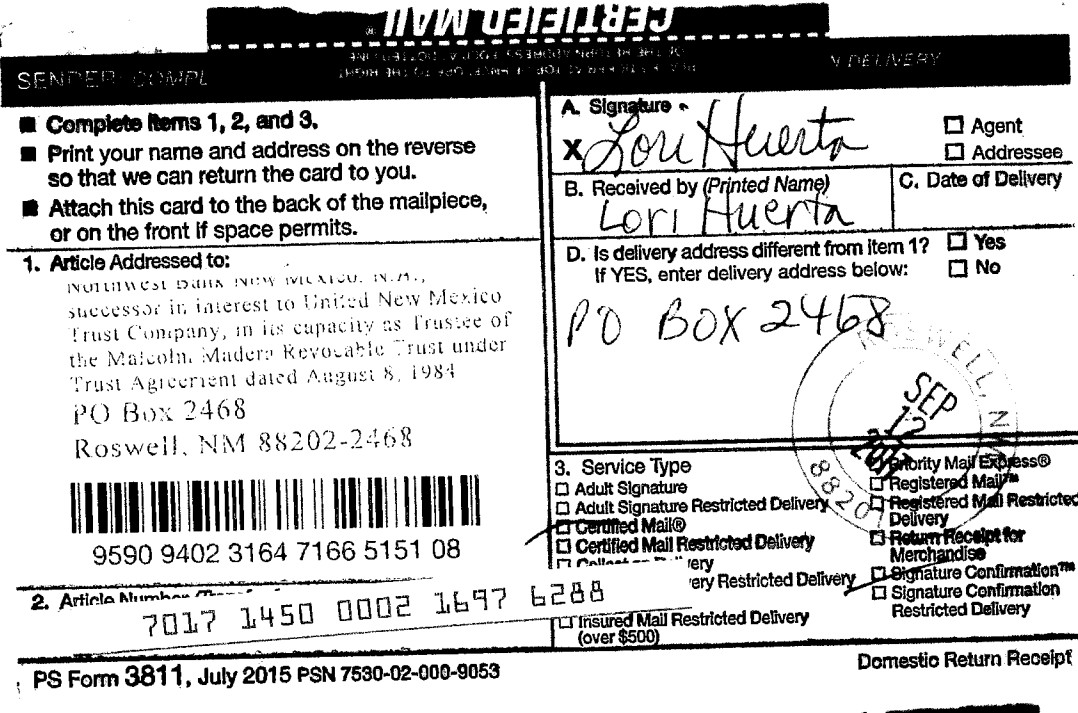 CERTIFIED MAIL®
SENDER: COMPL
N DELIVERY
■ Complete items 1, 2, and 3.
■ Print your name and address on the reverse
so that we can return the card to you.
■ Attach this card to the back of the mailpiece,
or on the front if space permits.
1. Article Addressed to:
Northwest Bank New Mexico, N.A.,
successor in interest to United New Mexico
Trust Company, in its capacity as Trustee of
the Malcolm Madera Revocable Trust under
Trust Agreement dated August 8, 1984
PO Box 2468
Roswell, NM 88202-2468
9590 9402 3164 7166 5151 08
2. Article Number
7017 1450 0002 1697 6288
A. Signature
X Lori Huerta
☐ Agent
☐ Addressee
B. Received by (Printed Name)
Lori Huerta
C. Date of Delivery
D. Is delivery address different from item 1? ☐ Yes
If YES, enter delivery address below: ☐ No
PO BOX 2468
ROSWELL, NM
SEP
12
2017
8820
3. Service Type
☐ Adult Signature
☐ Adult Signature Restricted Delivery
☐ Certified Mail®
☐ Certified Mail Restricted Delivery
☐ Collect on Delivery
very Restricted Delivery
☐ Insured Mail Restricted Delivery
(over $500)
Priority Mail Express®
☐ Registered Mail™
☐ Registered Mail Restricted
Delivery
☐ Return Receipt for
Merchandise
☐ Signature Confirmation™
☐ Signature Confirmation
Restricted Delivery
PS Form 3811, July 2015 PSN 7530-02-000-9053
Domestic Return Receipt